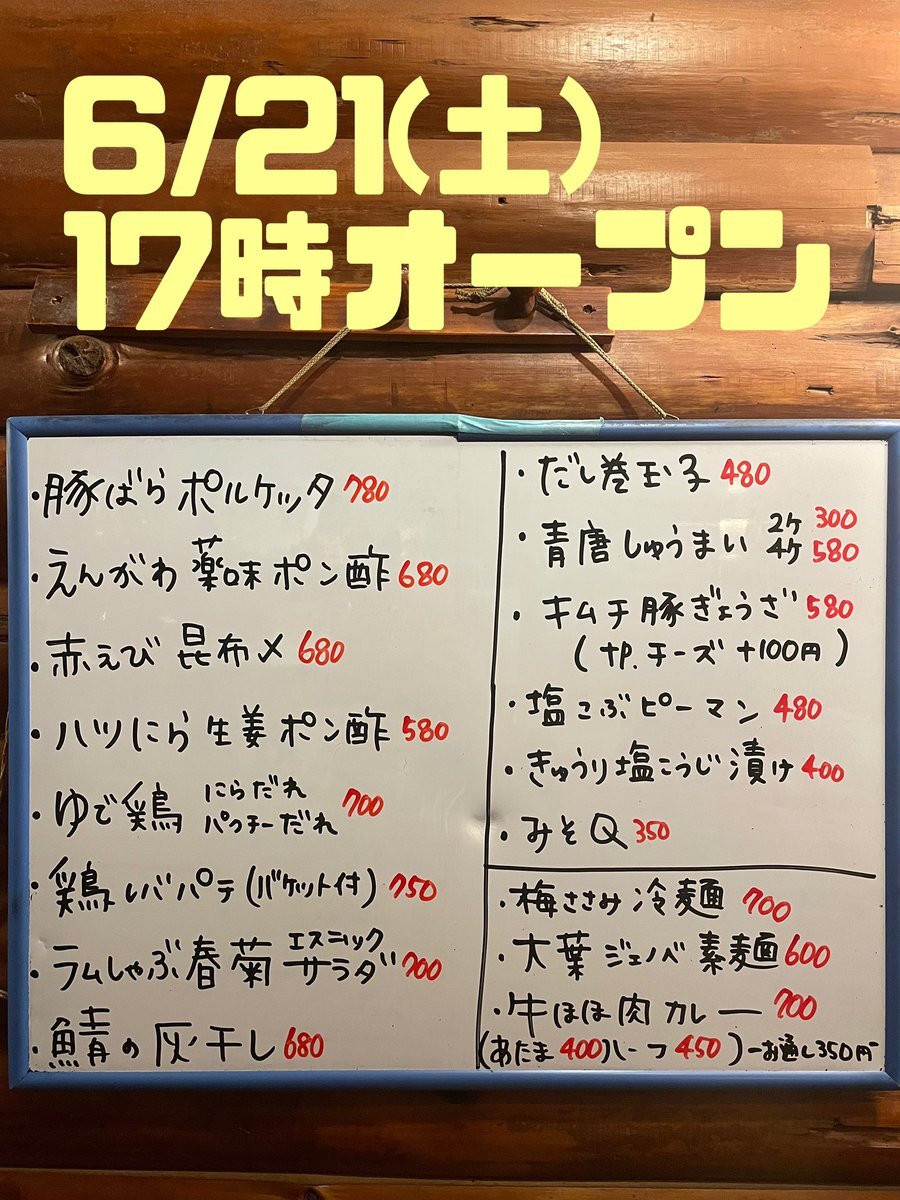 6/21(土)
17時オープン
・豚ばらポルケッタ 780
・えんがわ 薬味ポン酢 680
・赤えび 昆布〆 680
・ハツにら 生姜ポン酢 580
・ゆで鶏 にらだれ パクチーだれ 700
・鶏レバパテ(バケット付) 750
・ラムしゃぶ春菊 エスニックサラダ 700
・鯖の灰干し 680
・だし巻玉子 480
・青唐しゅうまい 2ケ 300
4ケ 580
・キムチ豚ぎょうざ 580
(tp.チーズ +100円)
・塩こぶピーマン 480
・きゅうり塩こうじ漬け 400
・みそQ 350
・梅ささみ冷麺 700
・大葉ジェノベ素麺 600
・牛ほほ肉カレー 700
(あたま 400)ハーフ 450) ーお通し350円ー